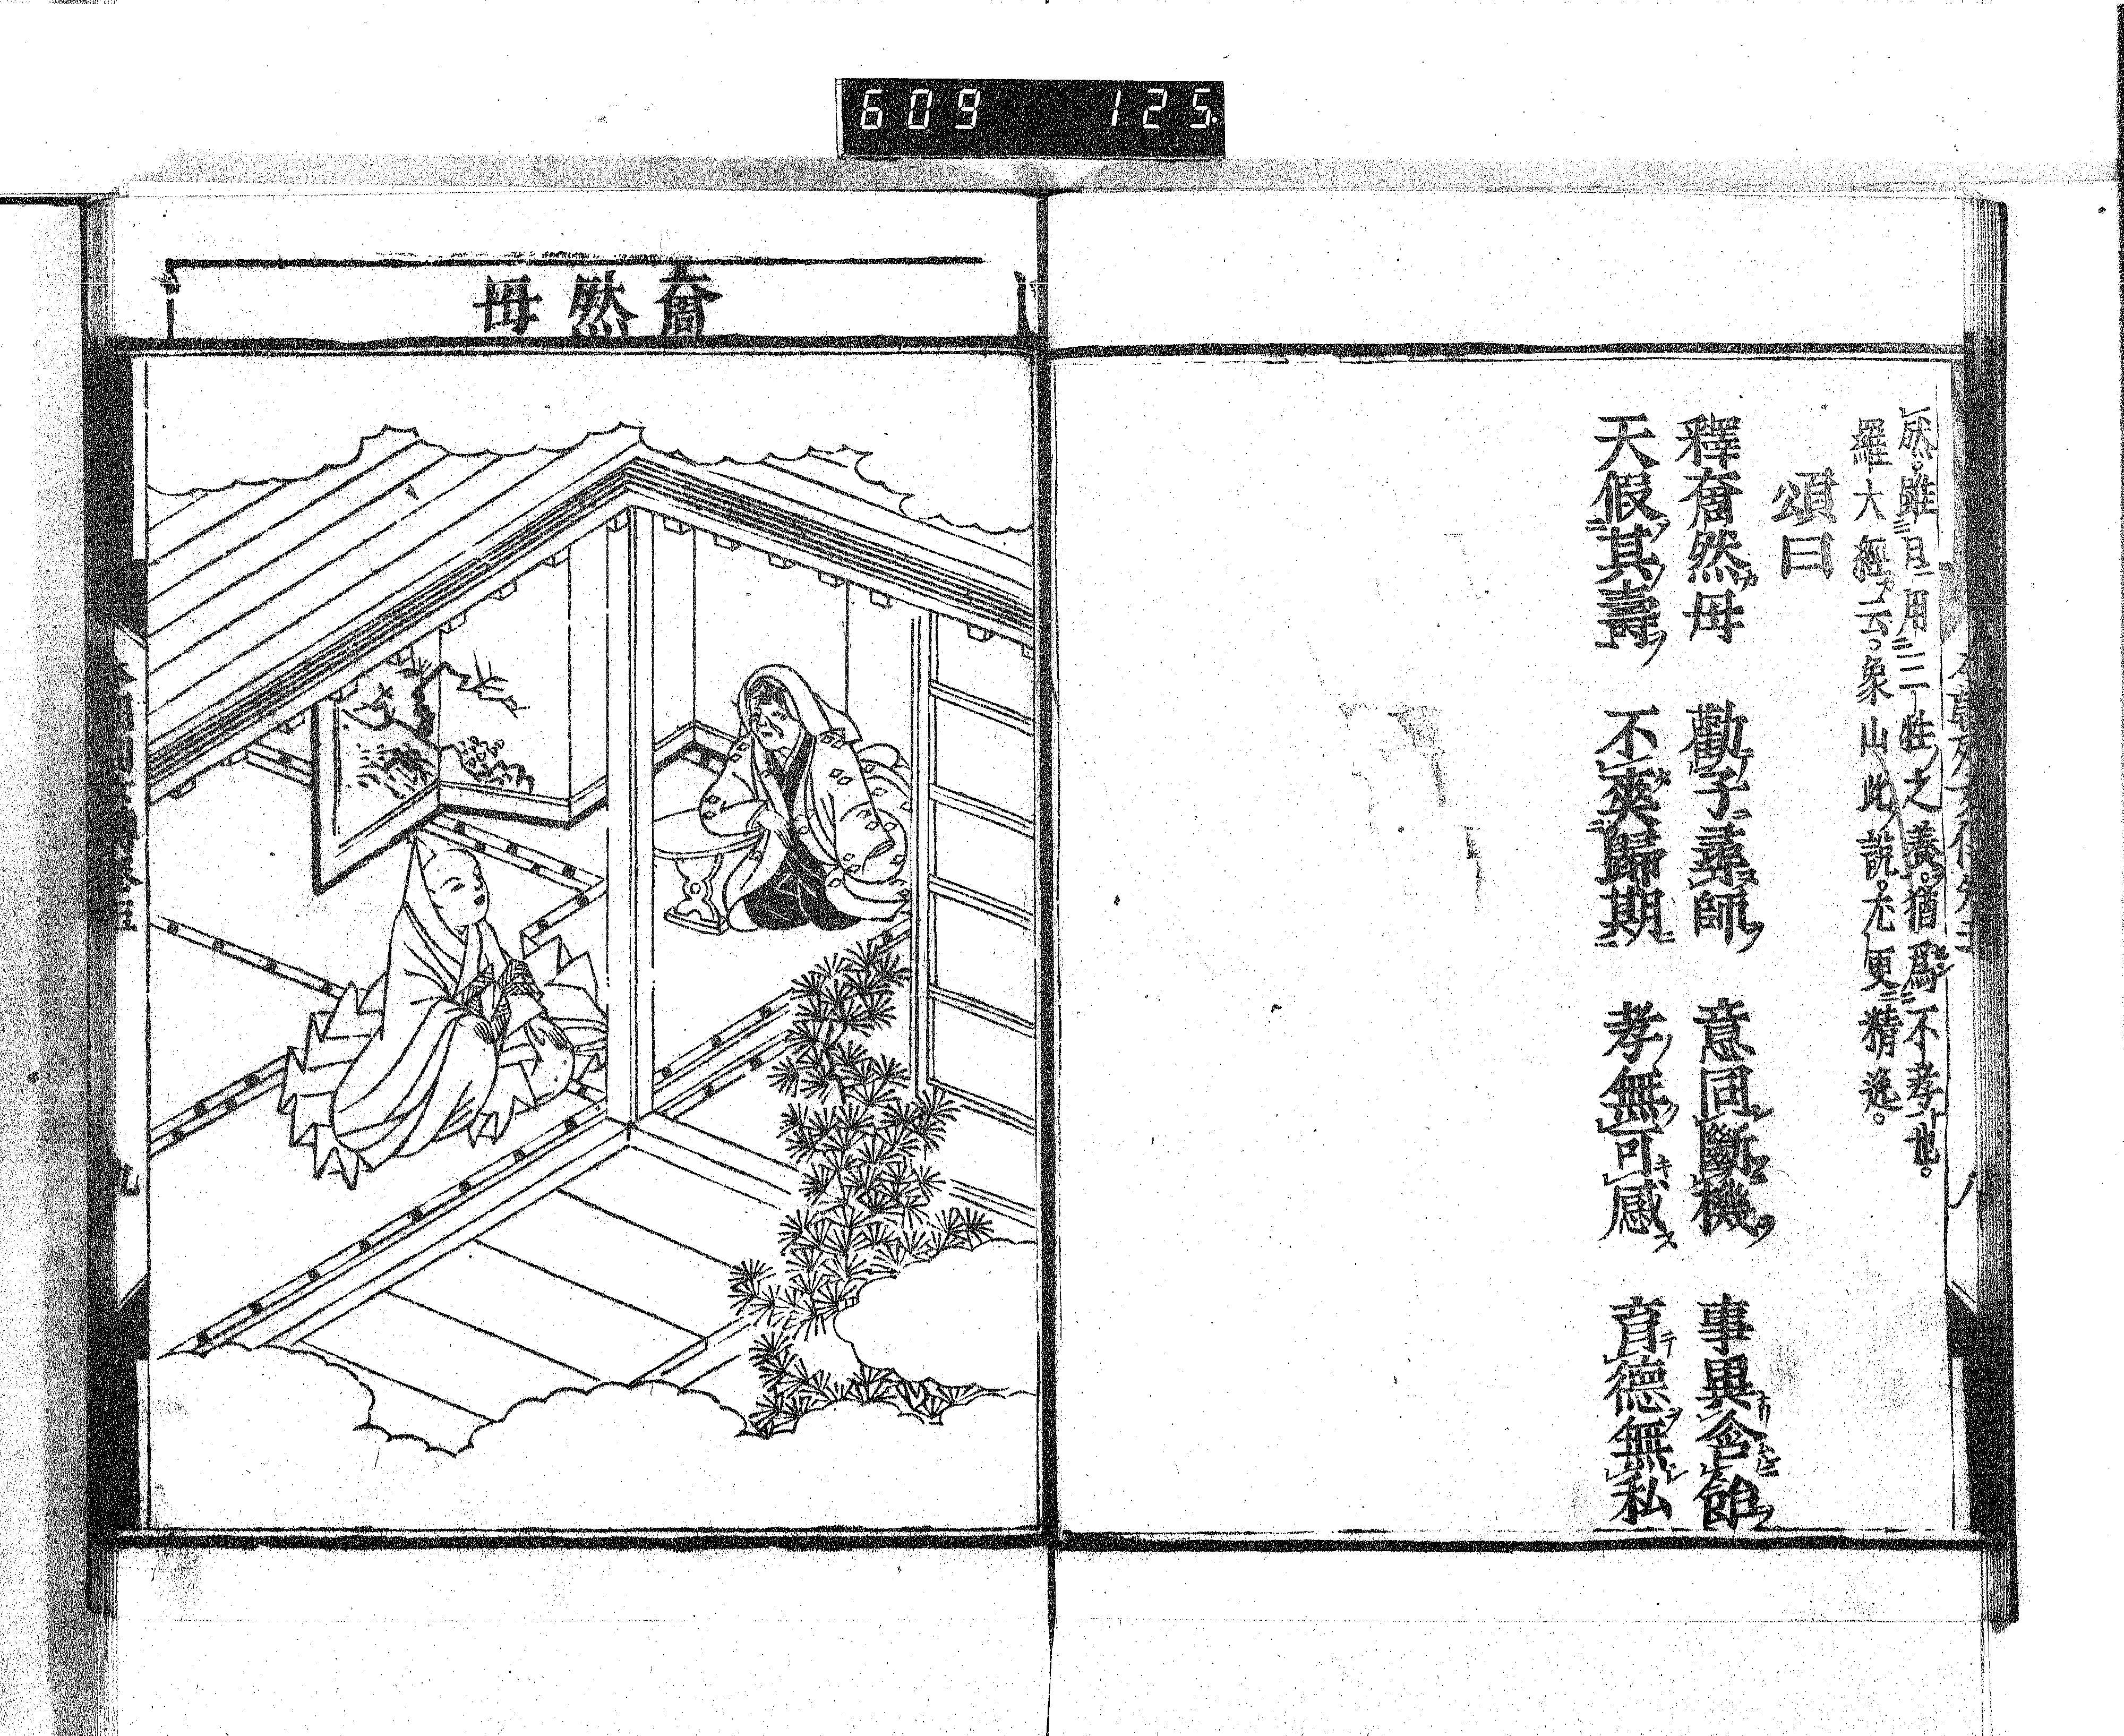 609 125.
然。雖日用三牲之養。猶爲不孝也。
羅大經云。象山此說。尤更精逸。
頌曰
釋奝然母 勸子尋師 意同斷機 事異含飴
天假其壽 不爽歸期 孝無可感 育德無私
奝然母